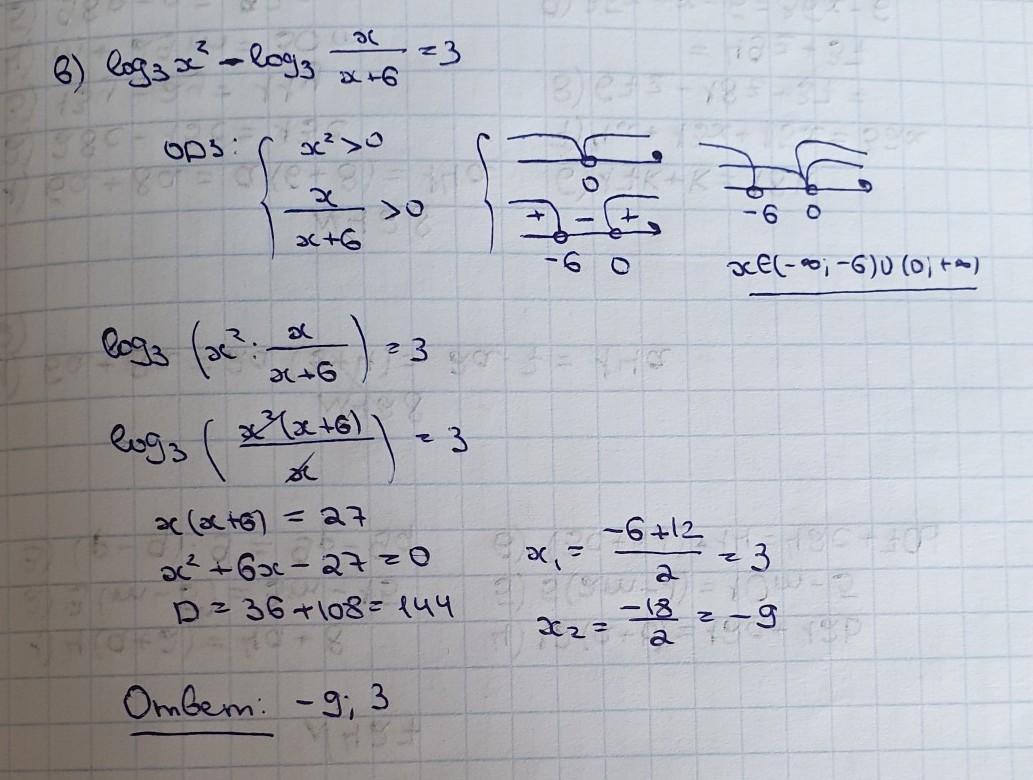 в) log₃x² - log₃ x/(x+6) = 3
ОДЗ: { x² > 0
x/(x+6) > 0
0
+ - +
-6 0
-6 0
x∈(-∞; -6)∪(0; +∞)
log₃ (x² : x/(x+6)) = 3
log₃ (x²(x+6)/x) = 3
x(x+6) = 27
x² + 6x - 27 = 0
D = 36 + 108 = 144
x₁ = (-6+12)/2 = 3
x₂ = -18/2 = -9
Ответ: -9; 3